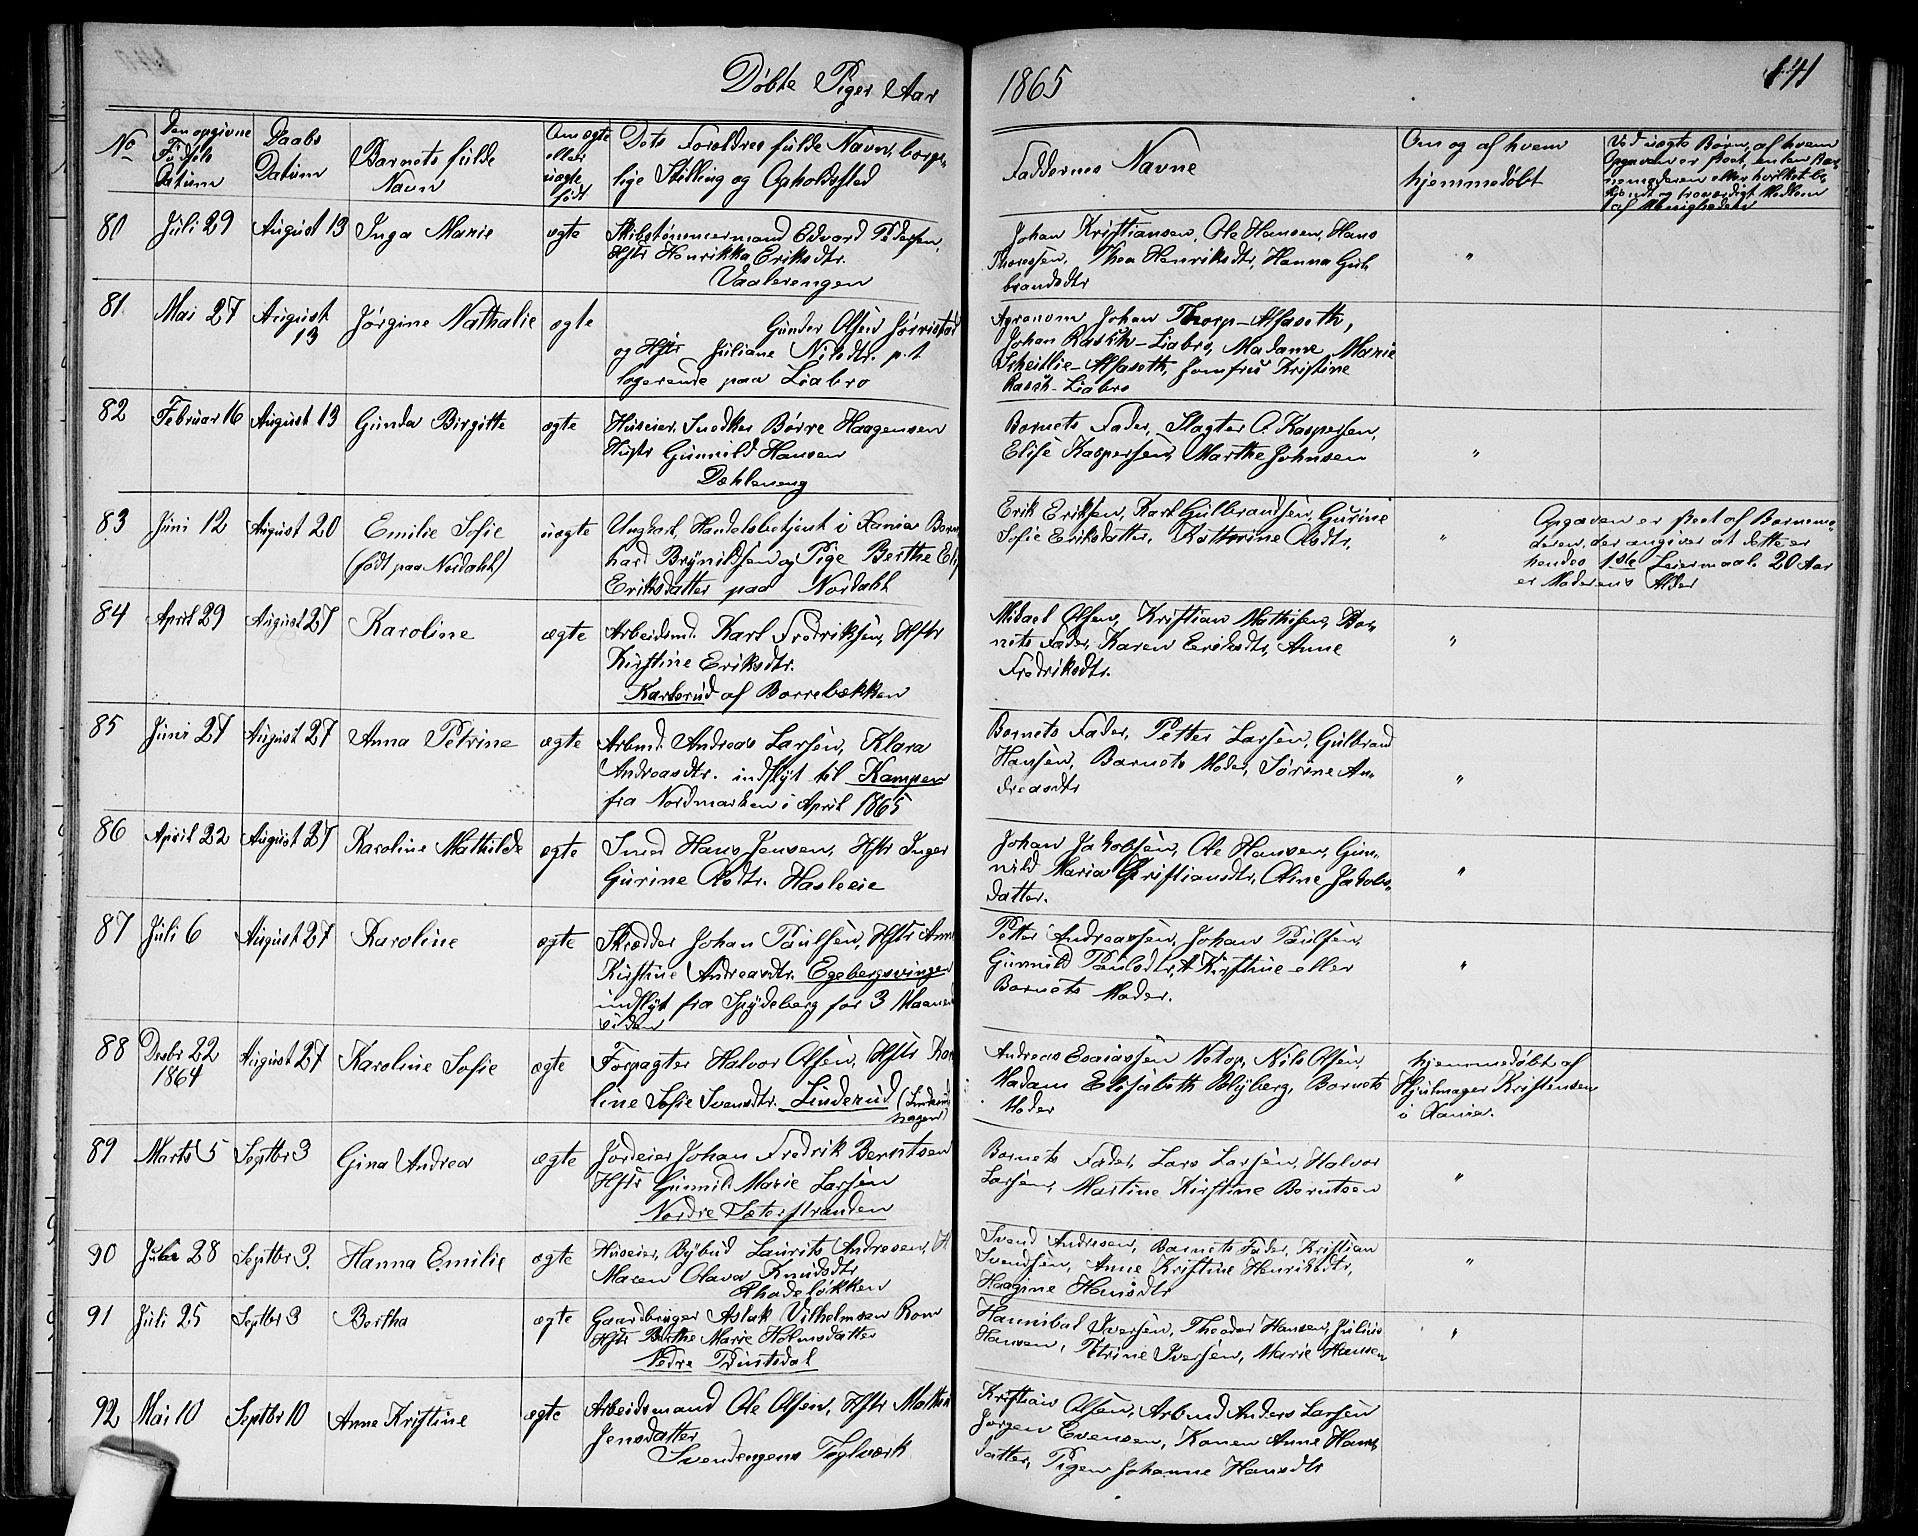 Døbte Piger Aar 1865
141
No
Den opgivne Fødsels Datum
Daabs Datum
Barnets fulde Navn
Om ægte eller uægte født
Dets Forældres fulde Navn, borger-
lige Stilling og Opholdssted
Faddernes Navne
Om og af hvem
hjemmedøbt
Ved uægte Børn, af hvem
Opgaven er skeet, enten Bar-
nemoderen eller hvilket be-
kjendt og troværdigt Medlem
af Menigheden
80 Juli 29 August 13 Inga Marie ægte Skibstømmermand Edvard Pedersen,
Hstr Henrikka Eriksdtr.
Vaalerengen
Johan Kristiansen, Ole Hansen, Hans
Thoresen, Thea Henriksdtr, Hanna Gul-
brandsdtr
"
81 Mai 27 August 13 Jørgine Nathalie ægte Gunder Olsen
og Hstr Juliane Nilsdtr. p.t
logerende paa Liabro
Agronom Johan Thorp-Alfaseth,
Johan Rasch-Liabro, Madame Marie
Scheitlie-Alfaseth, Jomfru Kristine
Rasch-Liabro
82 Februar 16 August 13 Gunda Birgitte ægte Huseier, Snedker Børre Haagensen
Hustr Gunnild Hansen
Dæhleneng
Barnets Fader, Slagter O. Kaspersen,
Elise Kaspersen, Marthe Johnsen
"
83 Juni 12 August 20 Emilie Sofie
(født paa Nordahl)
uægte Ungkarl, Handelsbetjent i Xania Bern-
hard Brynildsen og Pige Berthe
Eriksdatter paa Nordahl
Erik Eriksen, Karl Gulbrandsen, Gurine
Sofie Eriksdatter, Kathrine Olsdtr,
"
Opgaven er skeet af Barnemo-
deren, der angiver at dette er
hendes 1ste Leiermaal. 20 Aar
er Moderens Alder
84 April 29 August 27 Karoline ægte Arbeidsmd. Karl Fredriksen, Hstr
Kirstine Eriksdtr.
Karlsrud af Borrebækken
Mikael Olsen, Kristian Mathisen, Bar-
nets Fader, Karen Eriksdtr, Anne
Fredriksdtr.
"
85 Juni 27 August 27 Anna Petrine ægte Arbmd. Andreas Larsen, Klara
Andreasdtr. indflyt til Kampen
fra Nordmarken i April 1865
Barnets Fader, Petter Larsen, Gulbrand
Hansen, Barnets Moder, Sørine An-
dreasdtr
"
86 April 22 August 27 Karoline Mathilde ægte Smed Hans Jensen, Hstr Inger
Gurine Olsdtr. Hasleeie
Johan Jakobsen, Ole Hansen, Gun-
nild Maria Kristiansdtr, Oline Jakobs-
datter.
"
87 Juli 6 August 27 Karoline ægte Skrædder Johan Paulsen, Hstr Anne
Kirstine Andreasdtr. Egebergsvingen
indflyt fra Spydeberg for 3 Maaneder
siden
Petter Andreassen, Johan Paulsen,
Gunnild Paulsdtr, A Kirstine eller
Barnets Moder.
"
88 Decbr 22
1864
August 27 Karoline Sofie ægte Forpagter Halvor Olsen, Hstr Karo-
line Sofie Svensdtr. Linderud (Linderud
hagen)
Andreas Esaiassen Netop, Nils Olsen,
Madam Elisabeth Blyberg, Barnets
Moder
hjemmedøbt af
Hjulmager Kristensen
i Xania.
89 Marts 5 Septbr 3 Gina Andrea ægte Jordeier Johan Fredrik Berntsen
Hstr Gunnild Marie Larsen
Nordre Sæterstranden
Barnets Fader, Lars Larsen, Halvor
Larsen, Martine Kirstine Berntsen
"
90 28 Septbr 3. Hanna Emilie ægte Huseier, Bybud Laurits Andresen, H
Maren Olava Knudsdtr
Rhodeløkken
Svend Andresen, Barnets Fader, Kristian
Svendsen, Anne Kristine Henriksdtr,
Haagine Hansdtr
"
91 Juli 25 Septbr 3 Bertha ægte Gaardbruger Aslak Vilhelmsen Rom
Hstr Berthe Marie Holmsdatter
Nedre Prinsdal
Hannibal Iversen, Theodor Hansen, Julius
Hansen, Petrine Iversen, Marie Hansen
"
92 Mai 10 Septbr 10 Anne Kristine ægte Arbeidsmand Ole Olsen, Hstr
Jensdatter
Svendengens Teglværk
Kristian Olsen, Arbmd Anders Larsen
Jørgen Evensen, Konen Anne Hans-
datter, Pigen Johanne Hansdtr